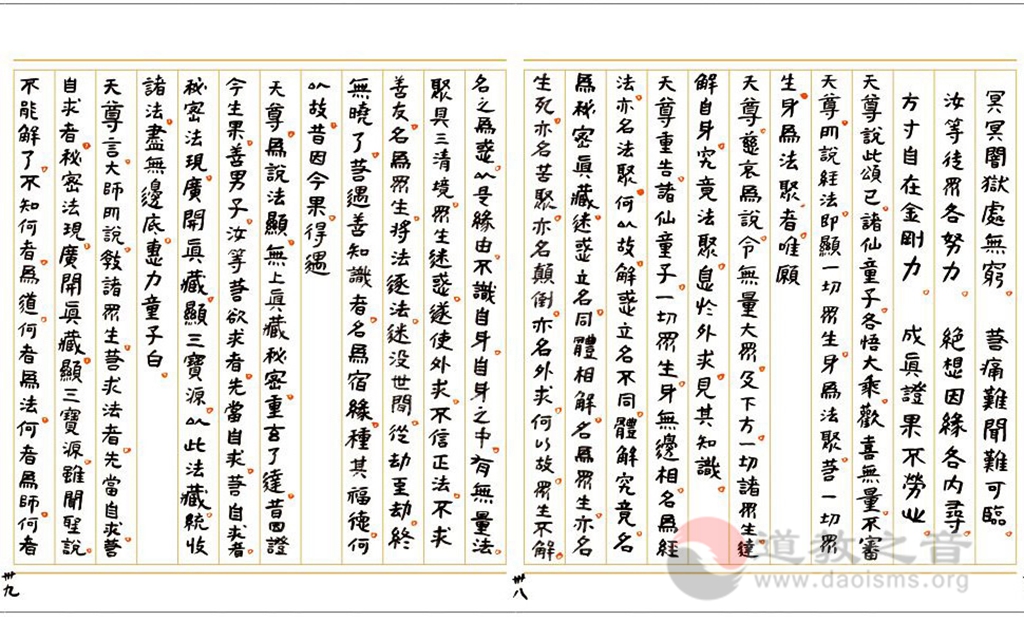 冥冥闇獄處無窮 苦痛難聞難可臨
汝等徒眾各努力 絕想因緣各內尋
方寸自在金剛力 成真證果不勞心
天尊說此頌已諸仙童子各悟大乘歡喜無量不審
天尊所說經法即顯一切眾生身為法聚若一切眾
生身為法聚者唯願
天尊慈哀為說令無量大眾及下方一切諸眾生達
解自身究竟法聚息於外求見其知識
天尊重告諸仙童子一切眾生身無邊相名為經
法亦名法聚何以故解惑立名不同體解究竟名
為秘密真藏迷惑立名同體相解名為眾生亦名
生死亦名苦聚亦名顛倒亦名外求何以故眾生不解
卅八
名之為惑以是緣由不識自身自身之中有無量法
聚具三清境眾生迷惑遂使外求不信正法不求
善友名為眾生將法逐法迷没世間從劫至劫終
無曉了若遇善知識者名為宿緣種其福德何
以故昔因今果得遇
天尊為說法顯無上真藏秘密重玄了達昔因證
今生果善男子汝等若欲求者先當自求若自求者
秘密法現廣開真藏顯三寶源以此法藏統收
諸法盡無邊底惠力童子白
天尊言大師所說教諸眾生若求法者先當自求若
自求者秘密法現廣開真藏顯三寶源雖聞聖說
不能解了不知何者為道何者為法何者為師何者
卅九
道教之音
www.daoisms.org